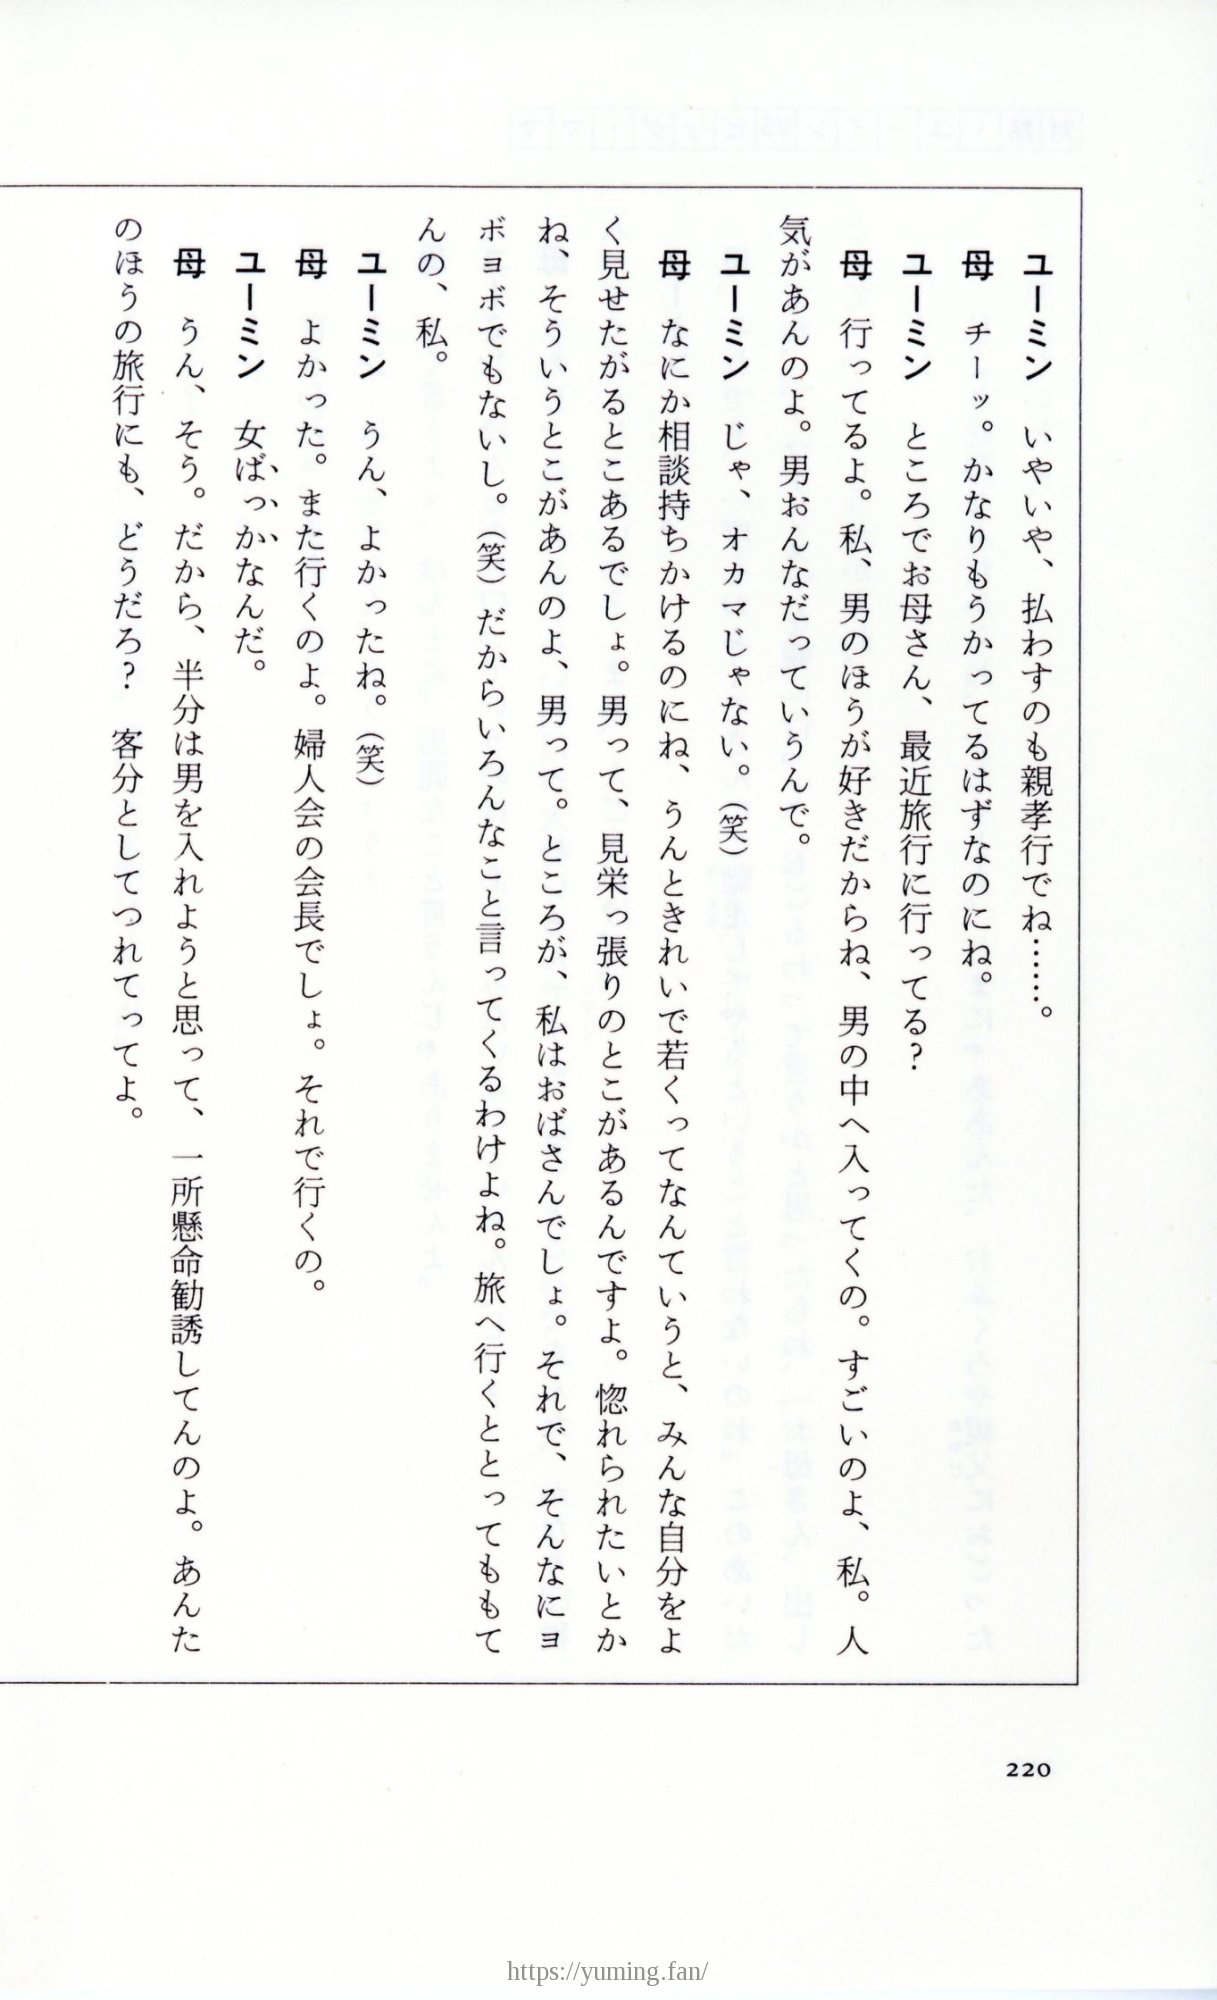 ユーミン　いやいや、払わすのも親孝行でね……。
母　チーッ。かなりもうかってるはずなのにね。
ユーミン　ところでお母さん、最近旅行に行ってる?
母　行ってるよ。私、男のほうが好きだからね、男の中へ入ってくの。すごいのよ、私。人
気があんのよ。男おんなだっていうんで。
ユーミン　じゃ、オカマじゃない。(笑)
母　なにか相談持ちかけるのにね、うんときれいで若くってなんていうと、みんな自分をよ
く見せたがるとこあるでしょ。男って、見栄っ張りのとこがあるんですよ。惚れられたいとか
ね、そういうとこがあんのよ、男って。ところが、私はおばさんでしょ。それで、そんなにヨ
ボヨボでもないし。(笑)だからいろんなこと言ってくるわけよね。旅へ行くととってももて
んの、私。
ユーミン　うん、よかったね。(笑)
母　よかった。また行くのよ。婦人会の会長でしょ。それで行くの。
ユーミン　女ばっかなんだ。
母　うん、そう。だから、半分は男を入れようと思って、一所懸命勧誘してんのよ。あんた
のほうの旅行にも、どうだろ?　客分としてつれてってよ。
220
https://yuming.fan/